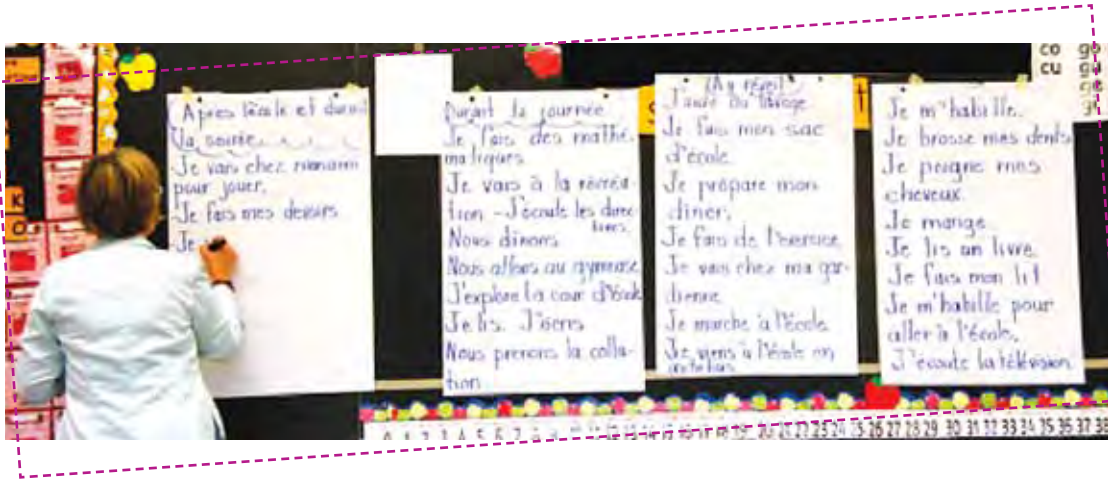 Après l'école et durant
la soirée
Je vais chez maman
pour jouer.
Je fais mes devoirs
Je
Durant la journée
Je fais des mathé-
matiques
Je vais à la récréa-
tion - J'écoute les direc-
tives.
Nous dînons
Nous allons au gymnase
J'explore la cour d'école
Je lis. J'écris
Nous prenons la colla-
tion
(Au réveil)
Je fais mon sac
d'école
Je prépare mon
dîner.
Je fais de l'exercice
Je vais chez ma gar-
dienne
Je marche à l'école
Je viens à l'école en
Je m'habille.
Je brosse mes dents
Je peigne mes
cheveux.
Je mange
Je lis un livre.
Je fais mon lit
Je m'habille pour
aller à l'école.
J'écoute la télévision
co go
cu gu
ge
gi
K
0 1 2 3 4 5 6 7 8 9 10 11 12 13 14 15 16 17 18 19 20 21 22 23 24 25 26 27 28 29 30 31 32 33 34 35 36 37 38